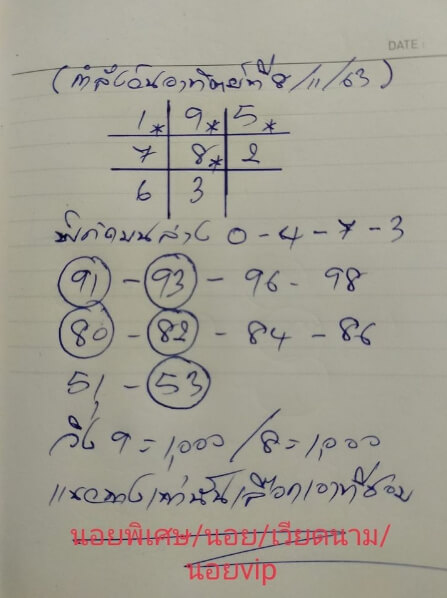 DATE :
(กำลังวันอาทิตย์ที่ 8/11/63)
1* 9* 5*
7 8* 2
6 3
บน ล่าง 0-4-7-3
91 - 93 - 96 - 98
80 - 82 - 84 - 86
51 - 53
วิ่ง 9 = 1,000 / 8 = 1,000
แนวทางเท่านั้นเลือกเอาที่ชอบ
นอยพิเศษ/นอย/เวียดนาม/
นอยvip